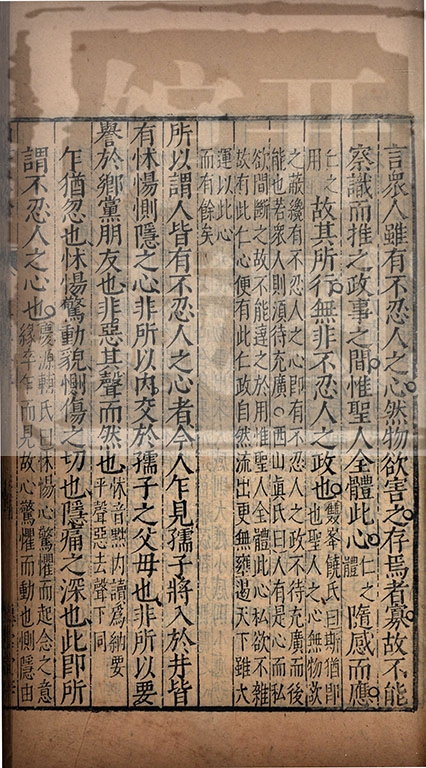 言衆人雖有不忍人之心然物欲害之存焉者寡故不能
察識而推之政事之間惟聖人全體此心仁之體隨感而應
仁之用故其所行無非不忍人之政也雙峯饒氏曰斯猶卽也聖人之心無物欲
之蔽纔有不忍人之心卽有不忍人之政不待充廣而後
能也若衆人則須待充廣○西山眞氏曰人有是心而私
欲間斷之故不能達之於用惟聖人全體此心私欲不雜
故有此仁心便有此仁政自然流出更無壅遏天下雖大
運以此心而有餘矣
所以謂人皆有不忍人之心者今人乍見孺子將入於井皆
有怵惕惻隱之心非所以内交於孺子之父母也非所以要
譽於鄉黨朋友也非惡其聲而然也怵音黜内讀爲納要平聲惡去聲下同
乍猶忽也怵惕驚動貌惻傷之切也隱痛之深也此即所
謂不忍人之心也慶源輔氏曰怵惕心驚懼而起念之意緣卒乍而見故心驚懼而動也惻隱由